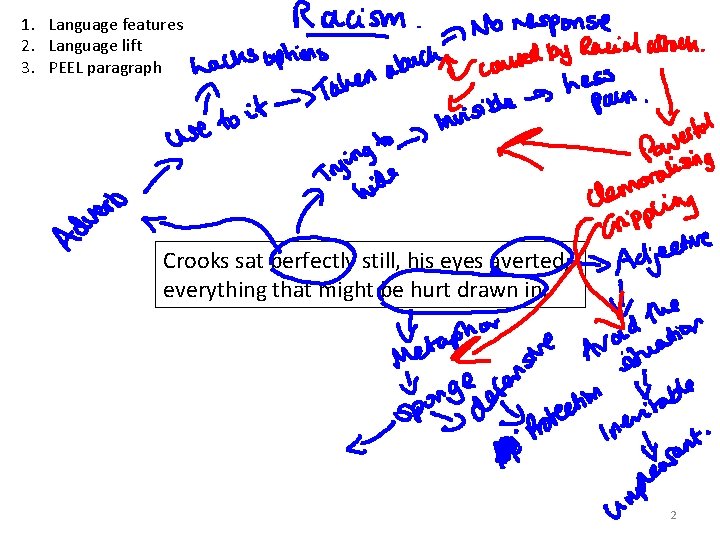 1. Language features
2. Language lift
3. PEEL paragraph
Racism.
No response
caused by Racial attack.
Lacks options
Taken aback
Use to it
Invisible
Less pain.
Trying to hide
Powerful
demoralising
Crippling
Adverb
Crooks sat perfectly still, his eyes averted,
everything that might be hurt drawn in
Adjective
Metaphor
Avoid the situation
Sponge
defensive
Protection
Inevitable
unpleasant.
2